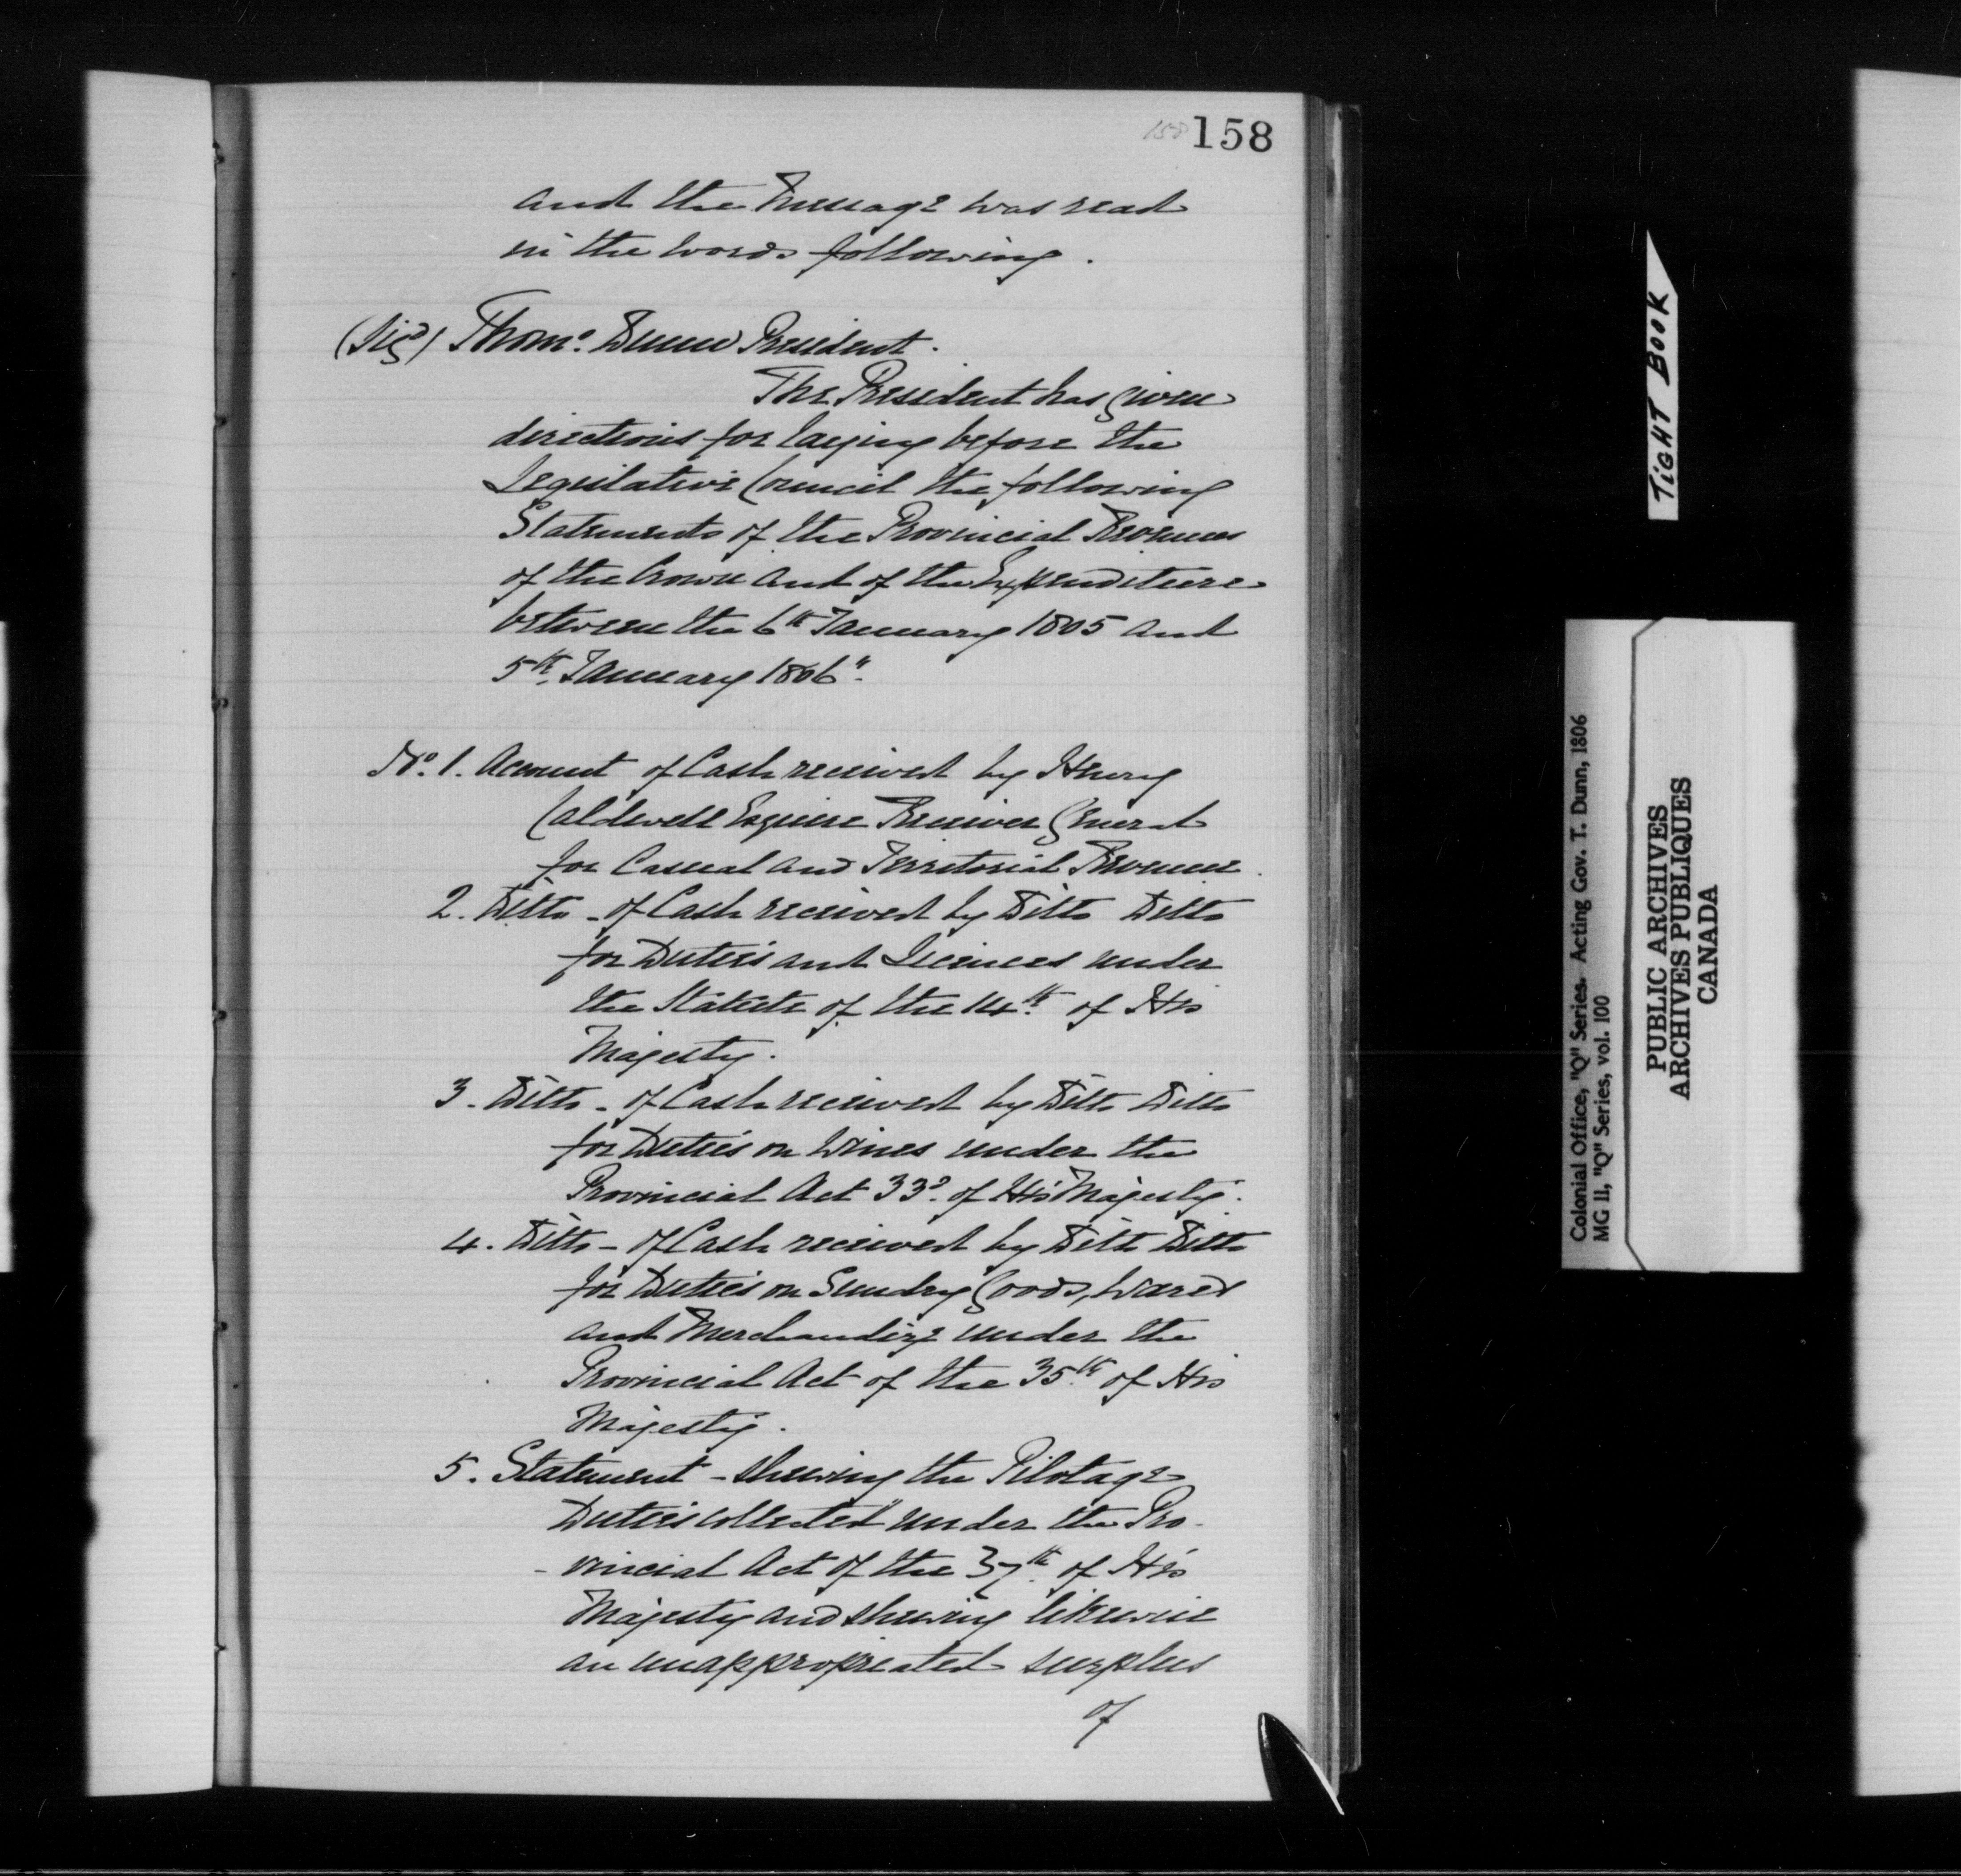 158 158
and the Message was read
in the words following.
(Sigd) Thoms. Dunn President.
The President has given
directions for laying before the
Legislative Council the following
Statements of the Provincial Revenues
of the Crown and of the Expenditure
between the 6th January 1805 and
5th January 1806".
No. 1. Account of Cash received by Henry
Caldwell Esquire Receiver General
for Casual and Territorial Revenue.
2. Ditto - of Cash received by Ditto Ditto
for Duties and Licences under
the Statute of the 14th of His
Majesty.
3. Ditto - of Cash received by Ditto Ditto
for Duties on Wines under the
Provincial Act 33d. of His Majesty.
4. Ditto - of Cash received by Ditto Ditto
for Duties on Sundry Goods, Wares
and Merchandize under the
Provincial Act of the 35th of His
Majesty.
5. Statement - shewing the Pilotage
Duties collected under the Pro-
-vincial Act of the 37th of His
Majesty and shewing likewise
an unappropriated surplus
of
TIGHT BOOK
Colonial Office, "Q" Series. Acting Gov. T. Dunn, 1806
MG II, "Q" Series, vol. 100
PUBLIC ARCHIVES
ARCHIVES PUBLIQUES
CANADA